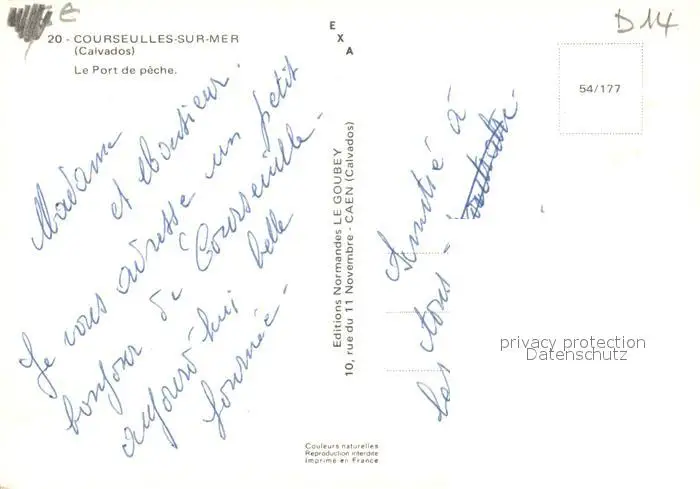 20.- COURSEULLES-SUR-MER
(Calvados)
Le Port de pêche.
E
X
A
D14
54/177
Madame
et Monsieur.
Je vous adresse un petit
bonjour de Courseulle-
aujourd'hui belle
journée-
Amitié à
tous
Editions Normandes LE GOUBEY
10, rue du 11 Novembre - CAEN (Calvados)
privacy protection
Datenschutz
Couleurs naturelles
Reproduction interdite
Imprimé en France